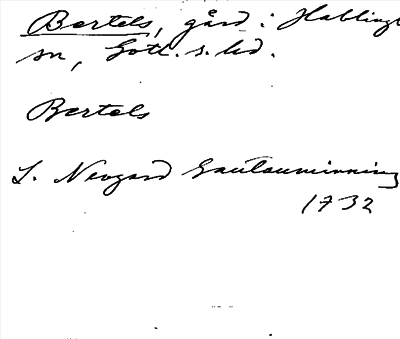 Bertels, gård i Hablingb
sn, Gotl. s. hd.
Bertels
L. Nevgard Gautauminning
1732